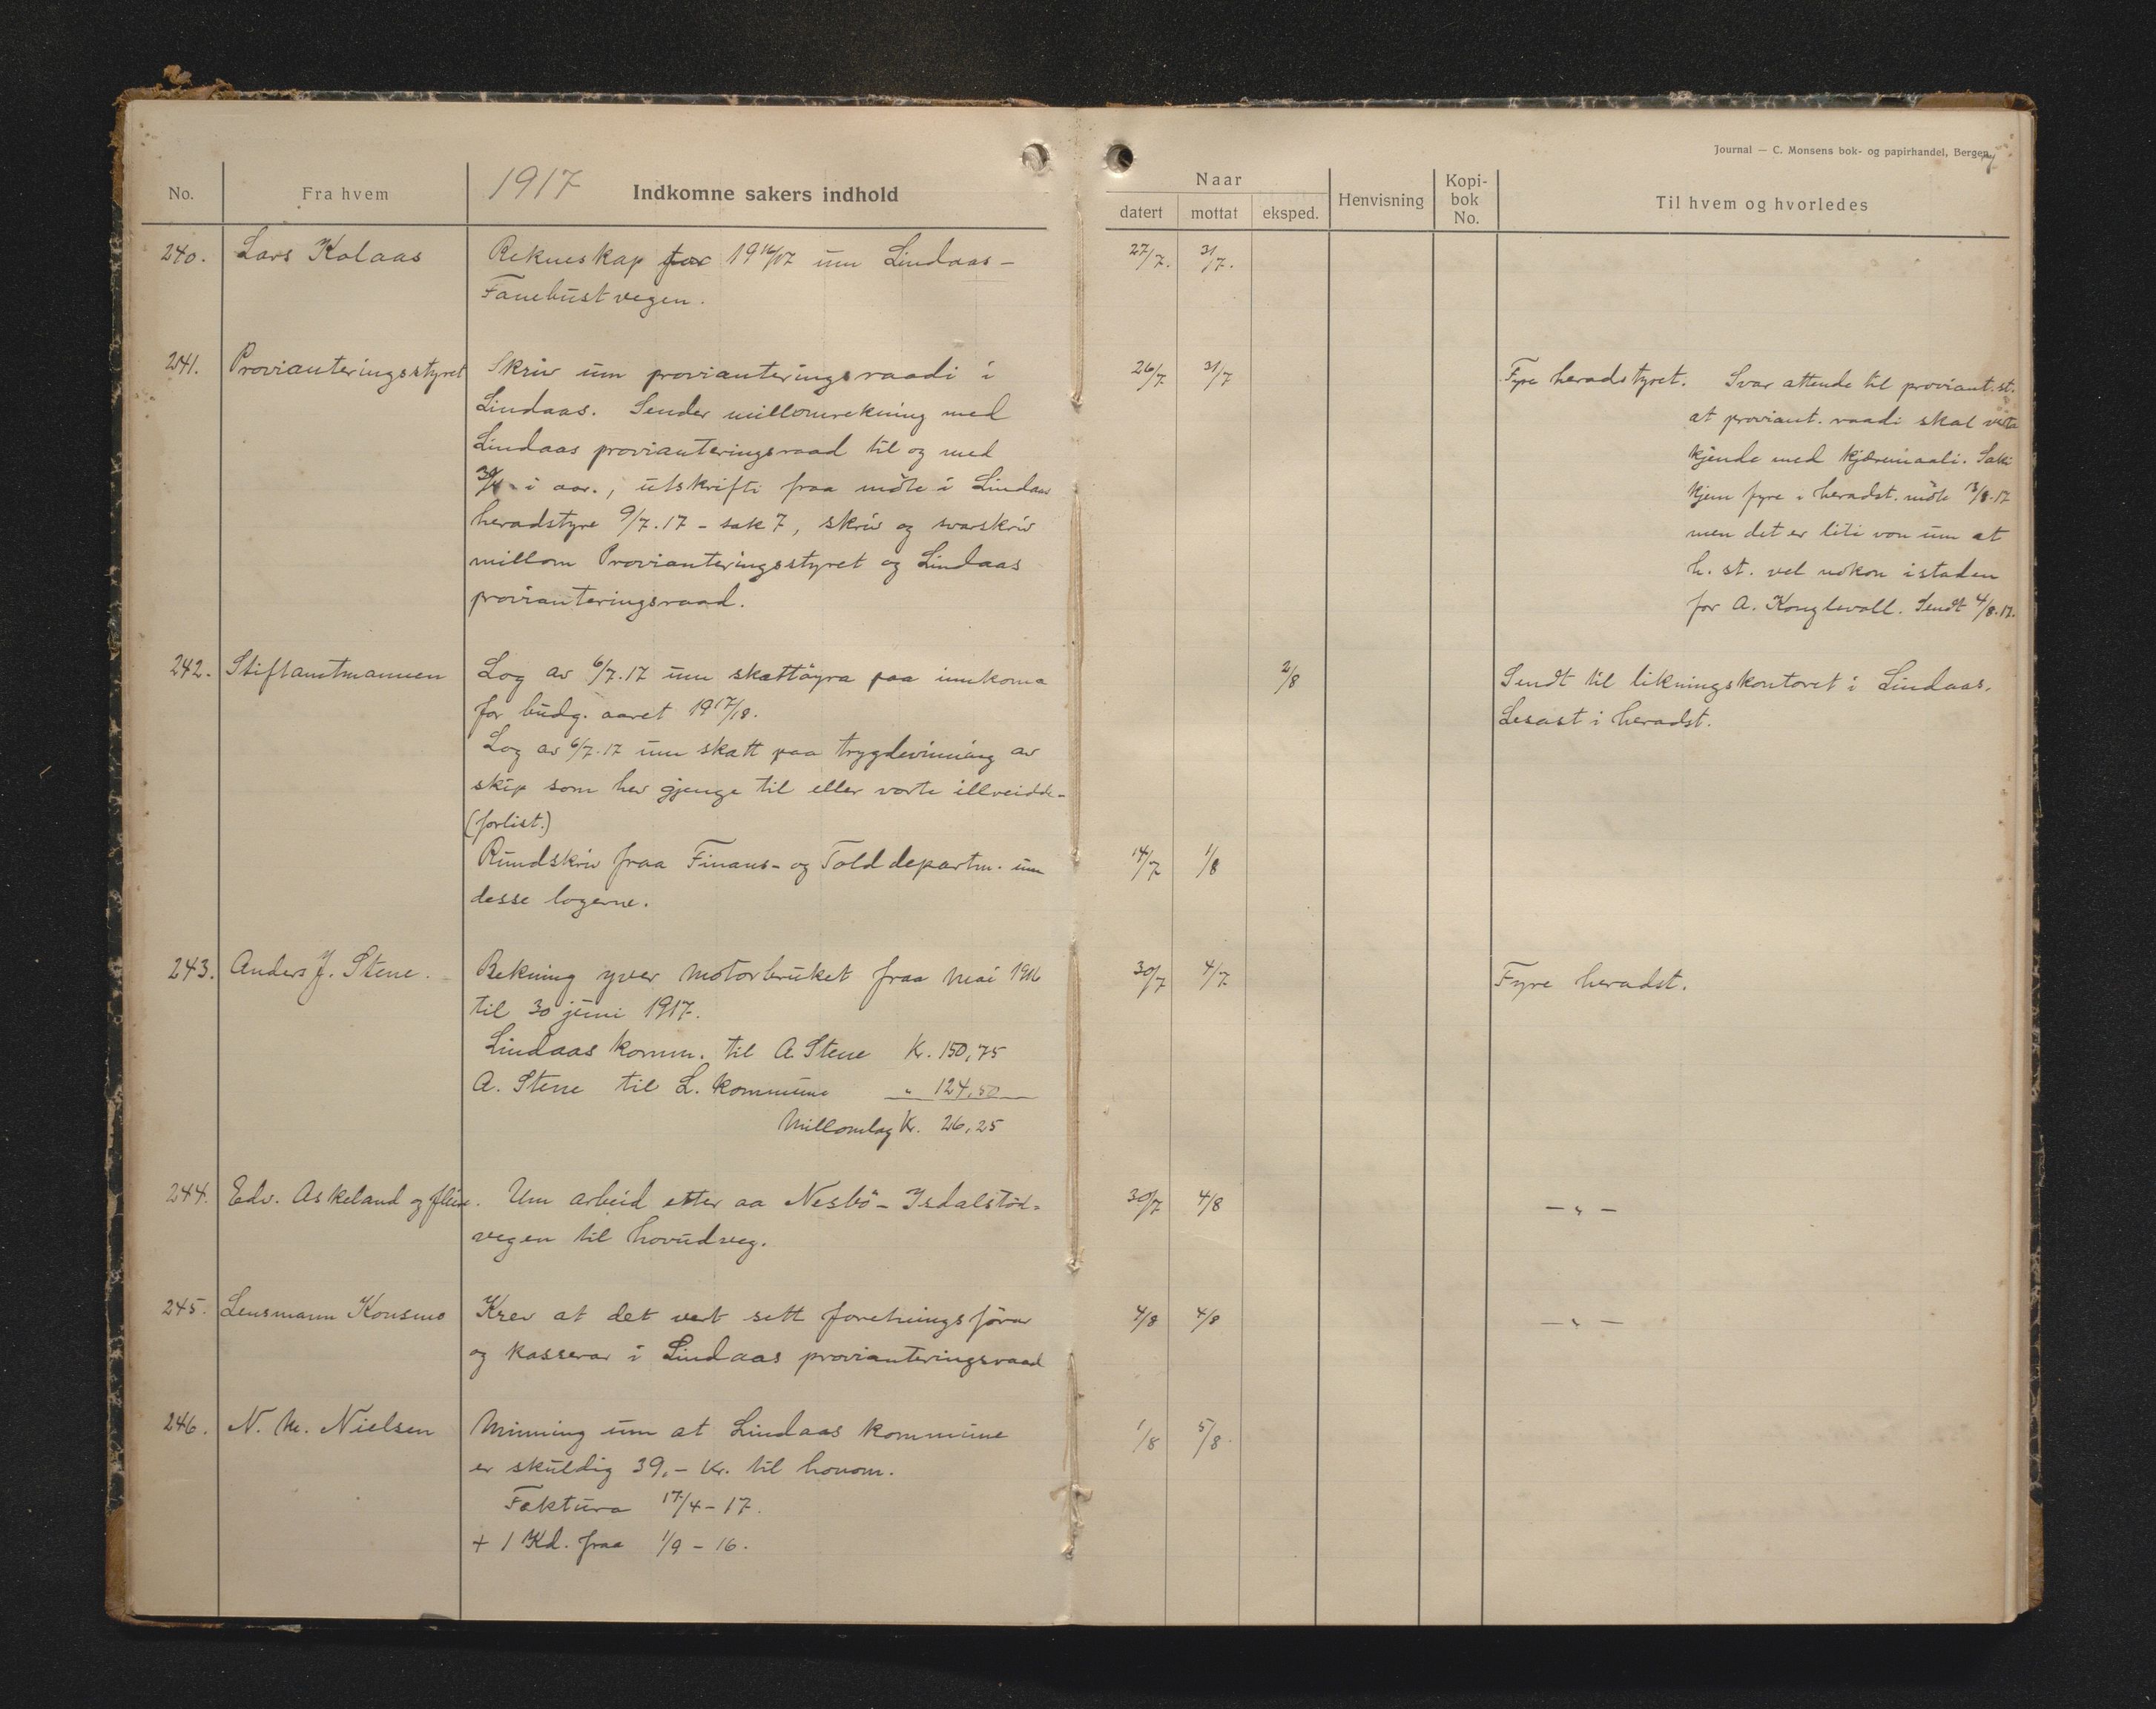 Journal — C. Monsens bok- og papirhandel, Bergen.
No. Fra hvem 1917 Indkomne sakers indhold Naar datert mottat eksped. Henvisning Kopi-bok No. Til hvem og hvorledes
240. Lars Kolaas Rekneskap for 19 16/17 um Lindaas- 27/7. 31/7.
Fanebust vegen.
241. Provianteringsstyret Skriv um provianteringsraadi i 26/7 31/7 Fyre heradstyret. Svar attende til proviant.st.
Lindaas. Sender millomrekning med at proviant. raadi skal verta
Lindaas provianteringsraad til og med kjende med kjæremaali. Saki
30/4 i aar., utskrifti fraa möte i Lindaas kjem fyre i heradst. möte 13/8-17
heradstyre 9/7.17 - sak 7, skriv og svarskriv men det er liti von um at
millom Provianteringsstyret og Lindaas h. st. vel nokon istaden
provianteringsraad. for A. Konglevoll. Sendt 4/8.17.
242. Stiftamtmannen Log av 6/7.17 um skattöyra paa innkoma 2/8 Sendt til likningskontoret i Lindaas.
for budg. aaret 19 17/18. Lesast i heradst.
Log av 6/7.17 um skatt paa trygdevinning av
skip som hev gjenge til eller vorte illveidde-
(forlist.)
Rundskriv fraa Finans- og Tolddepartm. um 14/7 1/8
desse logerne.
243. Anders J. Stene. Rekning yver motorbruket fraa mai 1916 30/7 4/7 Fyre heradst.
til 30 juni 1917.
Lindaas komm. til A. Stene Kr. 150,75
A. Stene til L. kommune " 124,50
Millomlag Kr. 26,25
244. Edv. Askeland og fleire. Um arbeid etter aa Nesbö-Isdalstöd- 30/7 4/8 — " —
vegen til hovudveg.
245. Lensmann Konsmo Krev at det vert sett foretningsförar 4/8 4/8 — " —
og kasserar i Lindaas provianteringsraad
246. N. M. Nielsen Minning um at Lindaas kommune 1/8 5/8
er skuldig 39,- kr. til honom.
Faktura 17/4-17.
+ 1 Kd. fraa 1/9-16.